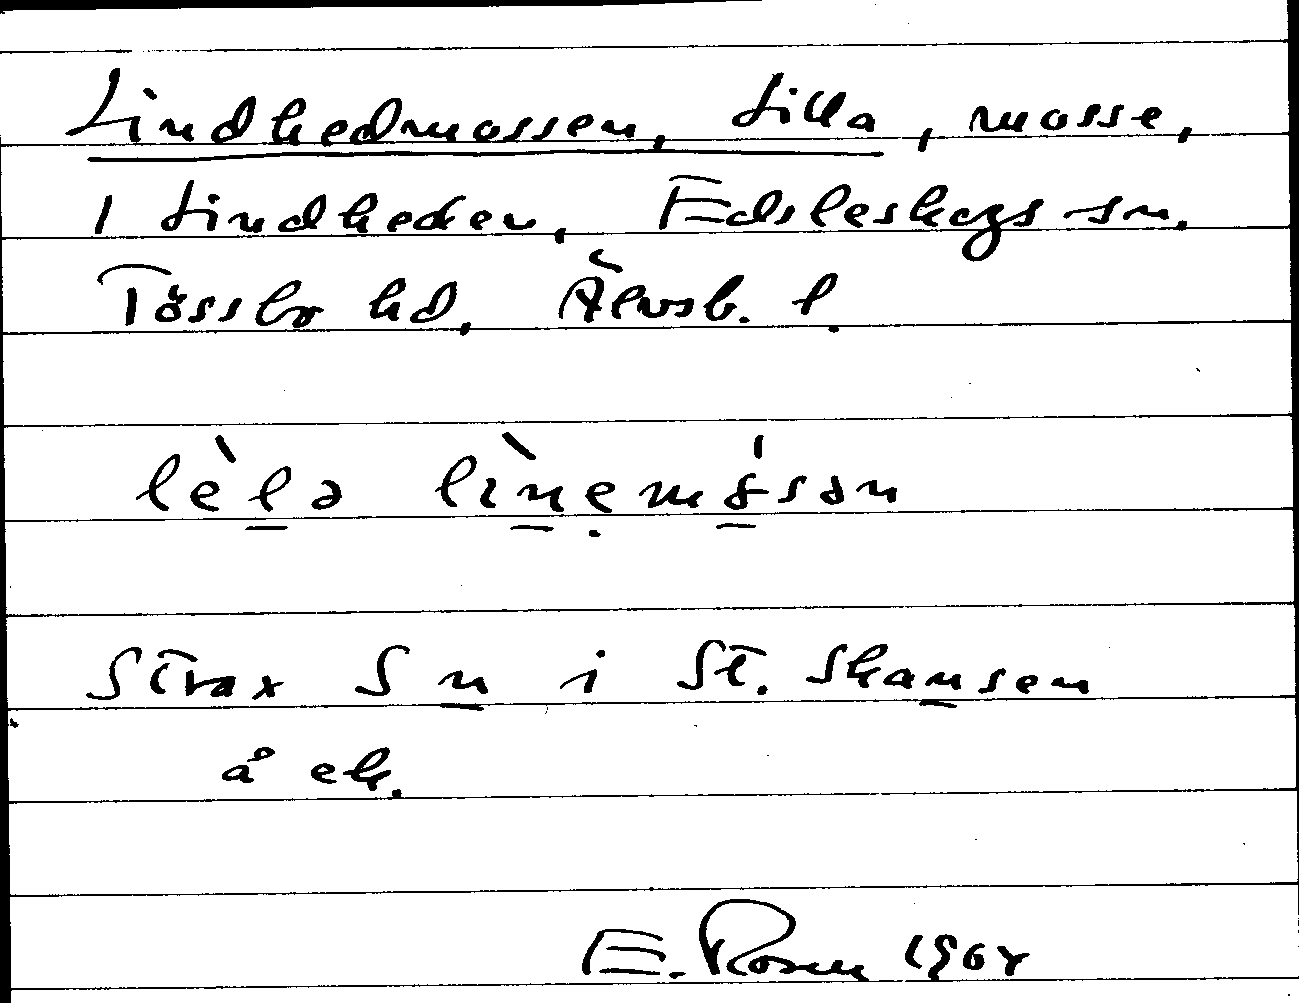 Lindhedmossen, Lilla, mosse,
1 Lindheden, Edsleskogs sn.
Tössbo hd, Älvsb. l.
lèlə lìnemósən
Strax S n i St. Skansen
å ek.
E. Rosen